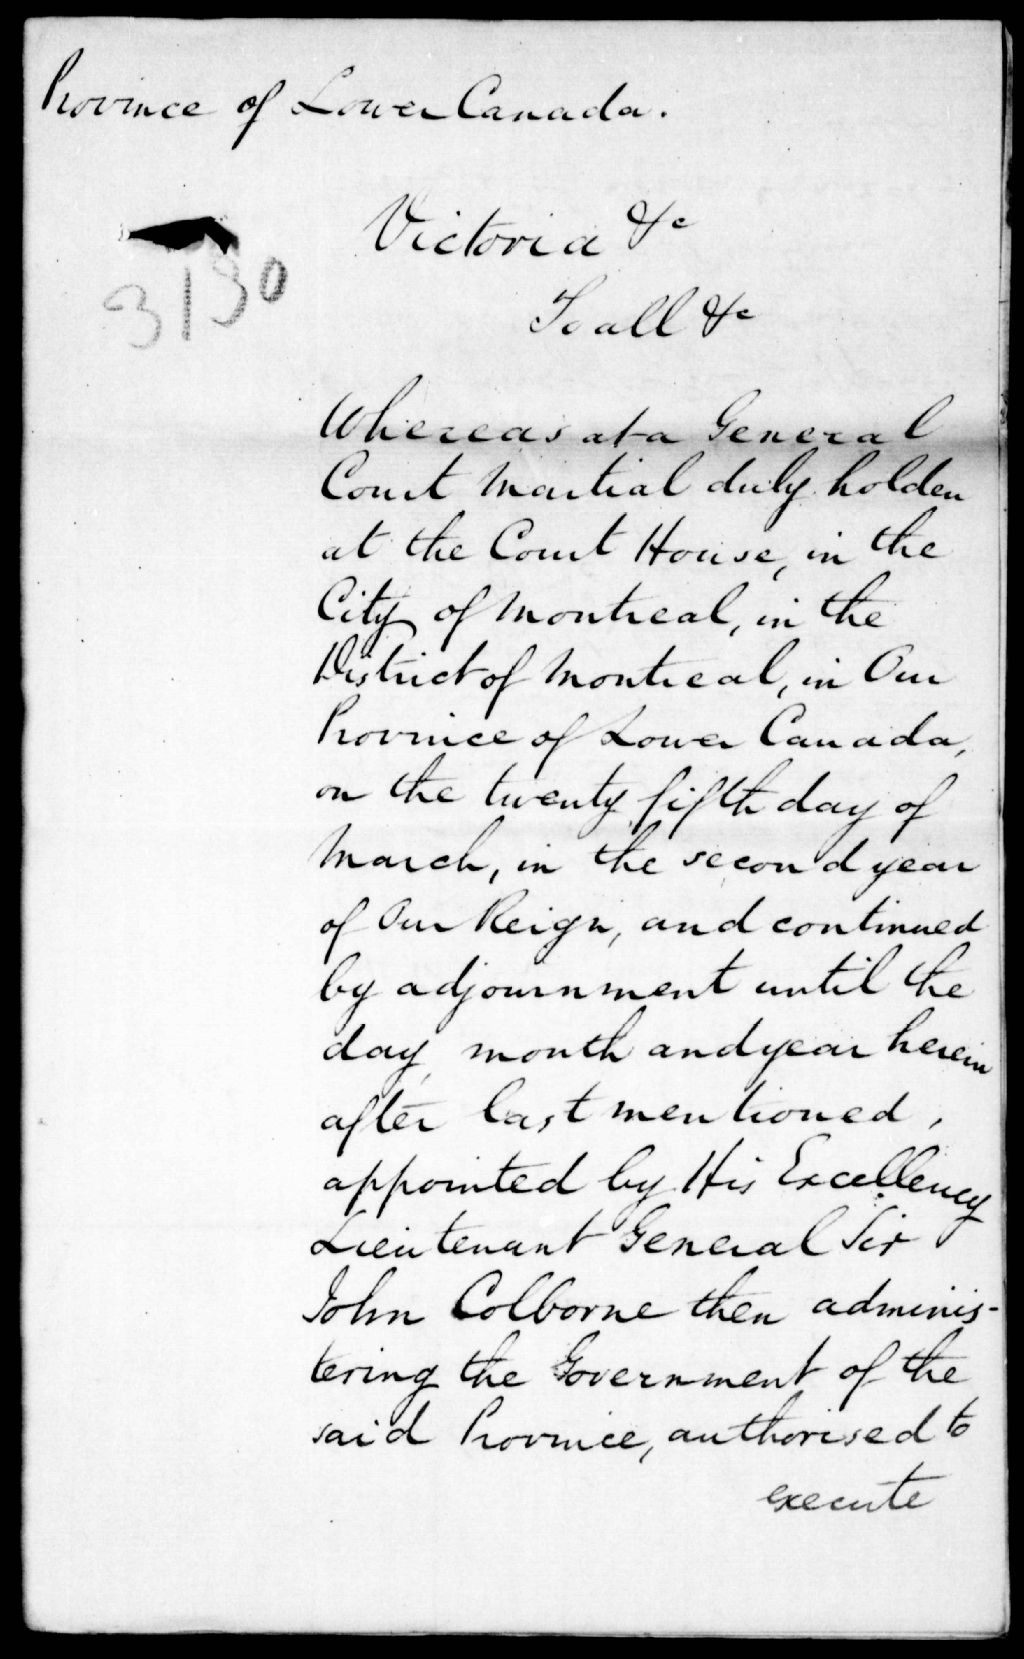 Province of Lower Canada.
Victoria &c
3130
To all &c
Whereas at a General
Court Martial duly holden
at the Court House, in the
City of Montreal, in the
District of Montreal, in Our
Province of Lower Canada,
on the twenty fifth day of
March, in the second year
of Our Reign, and continued
by adjournment until the
day, month and year herein
after last mentioned,
appointed by His Excellency
Lieutenant General Sir
John Colborne then adminis-
tering the Government of the
said Province, authorised to
execute